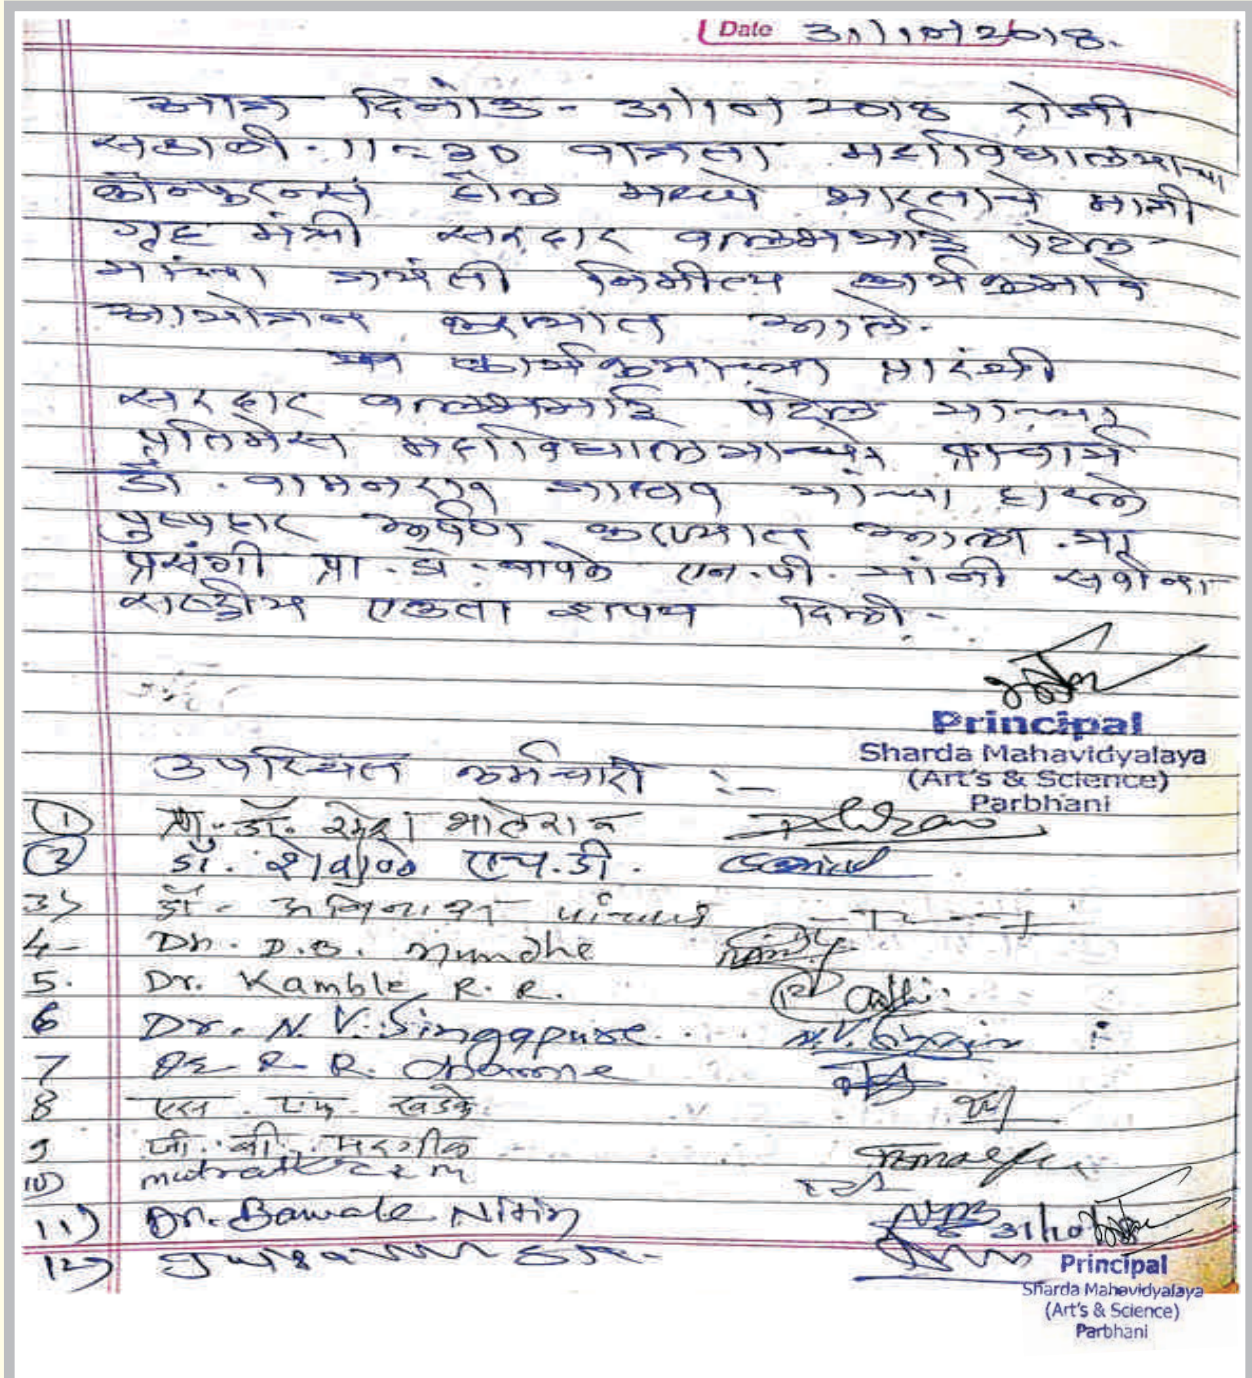 Date 31/10/2018.
आज दिनांक - 31/10/2018 रोजी
सकाळी - 11=30 वाजता महाविद्यालयाच्या
कॉन्फरन्स हॉल मध्ये भारताचे माजी
गृह मंत्री सरदार वल्लभभाई पटेल
यांच्या जयंती निमीत्य कार्यक्रमाचे
आयोजन करण्यात आले.
कार्यक्रमाच्या प्रारंभी
सरदार वल्लभभाई पटेल यांच्या
प्रतिमेस महाविद्यालयाचे प्राचार्य
डॉ. वामनराव जाधव यांच्या हास्ते
पुष्पहार अर्पण करण्यात आला. या
प्रसंगी प्रा. डॉ. बावळे एन. पी. यांनी सर्वांना
राष्ट्रीय एकता शपथ दिली.
Principal
Sharda Mahavidyalaya
(Art's & Science)
Parbhani
उपस्थित कर्मचारी :-
1 डॉ. भालेराव
2 डॉ. एच. डी.
3) डॉ. अविनाश पांचाळ
4- Dr. D.B. Mundhe
5. Dr. Kamble R. R.
6 Dr. N. V. Singapure N.V.
7 R. R.
8 एस. एफ. खडके
9 पी. बी.
10)
11) Dr. Bawale Nitin 31/10
12)
Principal
Sharda Mahavidyalaya
(Art's & Science)
Parbhani